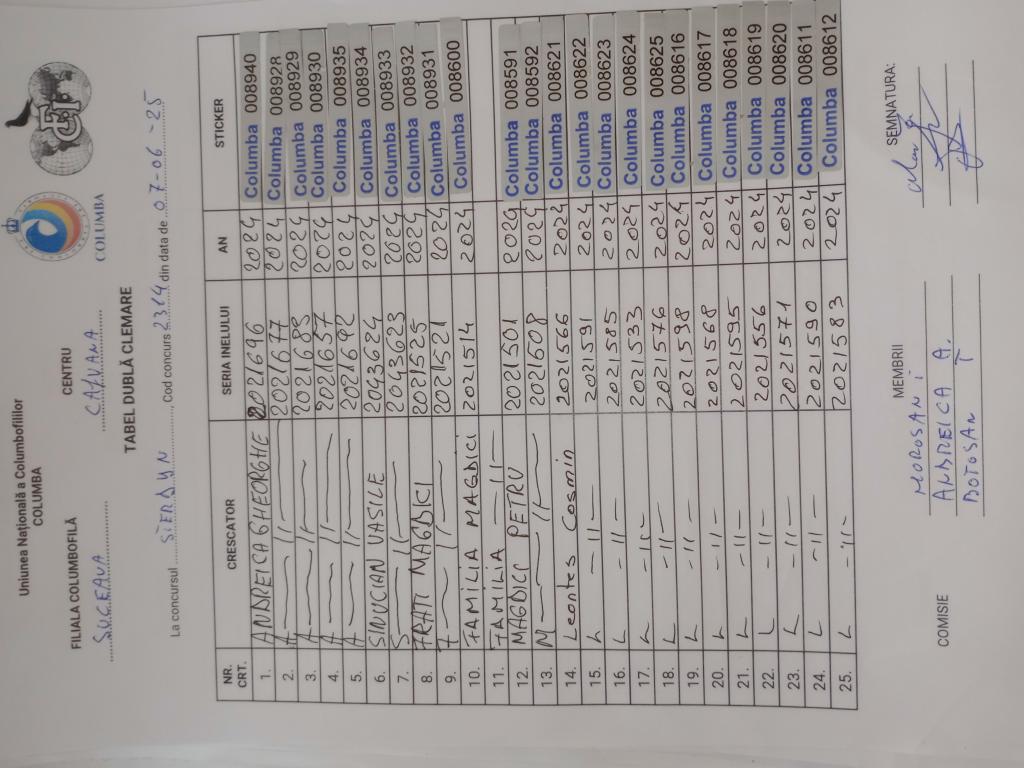 Uniunea Națională a Columbofililor
COLUMBA
COLUMBA
FCPR
FILIALA COLUMBOFILĂ CENTRU
SUCEAVA CAJVANA
TABEL DUBLĂ CLEMARE
La concursul SIERDYN, Cod concurs 2314 din data de 07-06-25
NR. CRT. CRESCATOR SERIA INELULUI AN STICKER
1. ANDREICA GHEORGHE 2021696 2024 Columba 008940
2. A —— 11 —— 2021677 2024 Columba 00892R
3. A —— 11 —— 2021685 2024 Columba 008929
4. A —— 11 —— 2021657 2024 Columba 008930
5. A —— 11 —— 2021692 2024 Columba 008935
6. SINUCIAN VASILE 2043624 2024 Columba 008934
7. S —— 11 —— 2043623 2024 Columba 008933
8. FRATI MAGDICI 2021525 2024 Columba 008932
9. F —— 11 —— 2021521 2024 Columba 008931
10. FAMILIA MAGDICI 2021514 2024 Columba 008600
11. FAMILIA — 11 —
12. MAGDICI PETRU 2021501 2024 Columba 008591
13. M —— 11 —— 2021508 2024 Columba 008592
14. Leontes Cosmin 2021566 2024 Columba 008621
15. L - 11 — 2021591 2024 Columba 008622
16. L - 11 — 2021585 2024 Columba 008623
17. L - 11 — 2021533 2024 Columba 008624
18. L - 11 — 2021576 2024 Columba 008625
19. L - 11 — 2021598 2024 Columba 008616
20. L - 11 — 2021568 2024 Columba 008617
21. L - 11 — 2021595 2024 Columba 008618
22. L - 11 — 2021556 2024 Columba 008619
23. L - 11 — 2021571 2024 Columba 008620
24. L - 11 — 2021590 2024 Columba 008611
25. L - 11 - 2021583 2024 Columba 008612
MEMBRII SEMNATURA:
COMISIE MOROSAN I
ANDREICA A.
BOTOSAN T